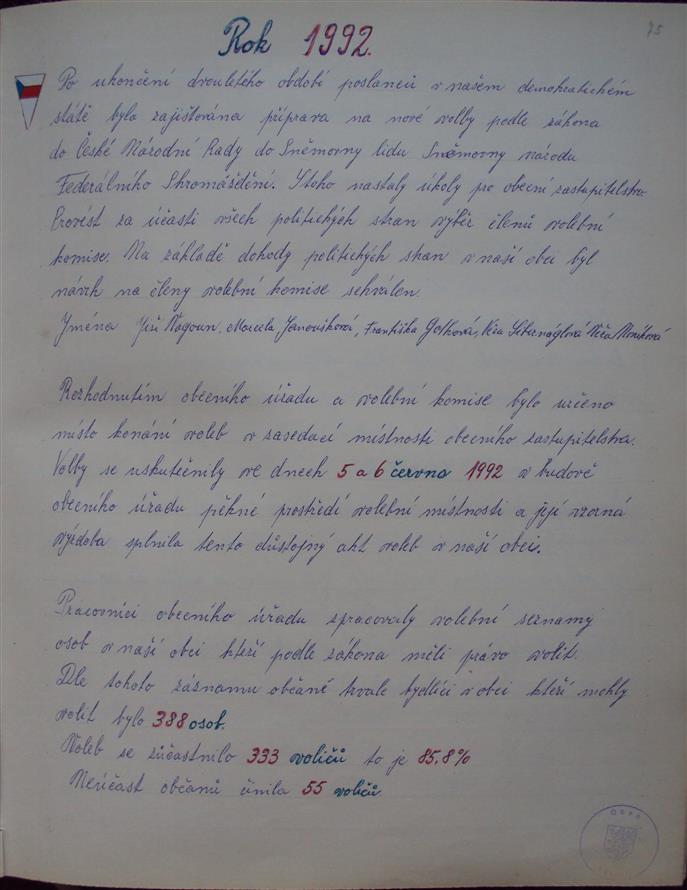 75
Rok 1992.
Po ukončení dvouletého období poslanců v našem demokratickém
státě byla zajišťována příprava na nové volby podle zákona
do České Národní Rady do Sněmovny lidu Sněmovny národu
Federálního Shromáždění. Z toho nastaly úkoly pro obecní zastupitelstvo
Provést za účasti všech politických stran výběr členů volební
komise. Na základě dohody politických stran v naší obci byl
návrh na členy volební komise schválen.
Jména Jiří Wagoun, Marcela Janoušková, Františka Golková, Věra Věra Nováková
Rozhodnutím obecního úřadu a volební komise bylo určeno
místo konání voleb v zasedací místnosti obecního zastupitelstva.
Volby se uskutečnily ve dnech 5 a 6 června 1992 v budově
obecního úřadu pěkné prostředí volební místnosti a její vzorná
výzdoba splnila tento důstojný akt voleb v naší obci.
Pracovníci obecního úřadu zpracovaly volební seznamy
osob v naší obci kteří podle zákona měli právo volit.
Dle tohoto záznamu občané trvale bydlící v obci kteří mohly
volit bylo 388 osob.
Voleb se zúčastnilo 333 voličů to je 85,8%
Neúčast občanů činila 55 voličů